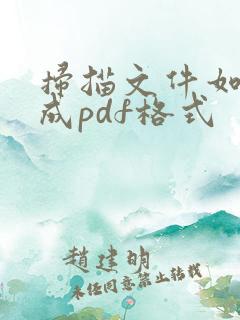 扫描文件如
成pdf格式
赵建明
未经同意禁止转载